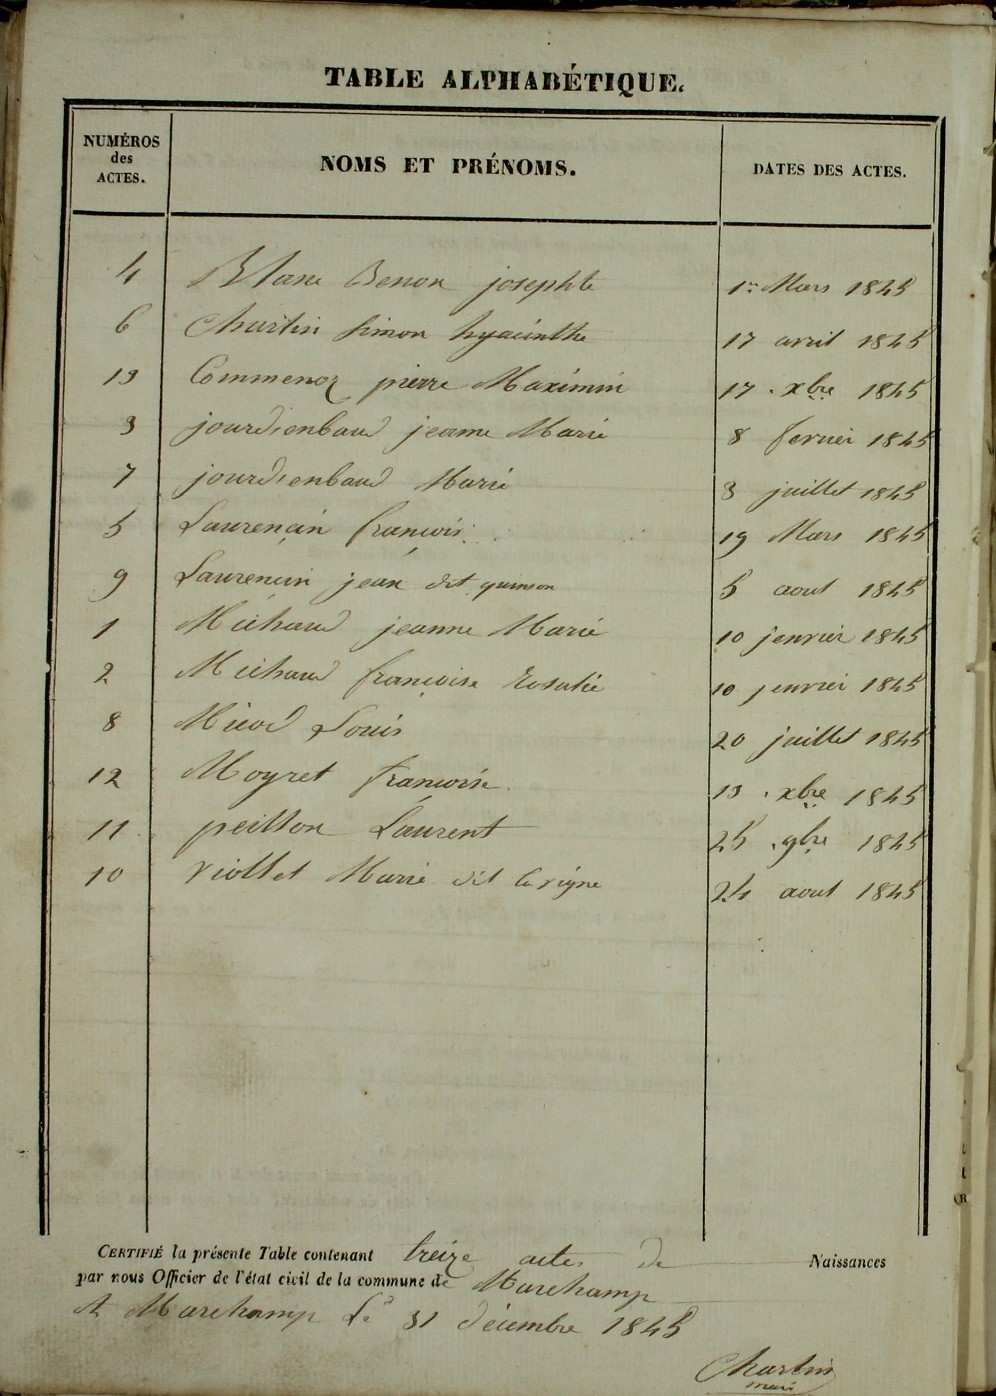 TABLE ALPHABÉTIQUE.
NUMÉROS des ACTES. NOMS ET PRÉNOMS. DATES DES ACTES.
4 Blanc Benon josephte 1er Mars 1845
6 Chartin Simon hyacinthe 17 avril 1845
13 Commenoz pierre Maximin 17 xbre 1845
3 jourdienbaud jeanne Marie 8 fevrier 1845
7 jourdienbaud Marie 3 juillet 1845
5 Laurençin françois 19 Mars 1845
9 Laurençin jean dit quinson 5 aout 1845
1 Michaud jeanne Marie 10 jenvier 1845
2 Michaud françoise Rosalie 10 jenvier 1845
8 Micod Louis 20 juillet 1845
12 Moyret françoise 13 xbre 1845
11 peillon Laurent 25 9bre 1845
10 Viollet Marie dit la vigne 24 aout 1845
CERTIFIÉ la présente Table contenant treize actes de Naissances
par nous Officier de l'état civil de la commune de Marchamp
A Marchamp Le 31 décembre 1845
Chartin
maire